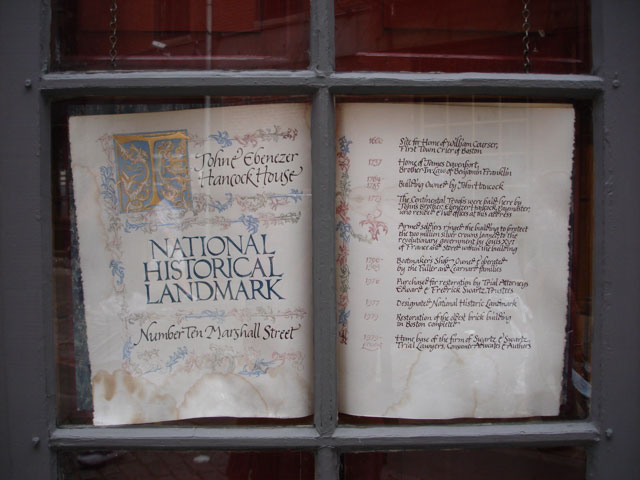 John & Ebenezer
Hancock House
NATIONAL
HISTORICAL
LANDMARK
Number Ten Marshall Street
1660 Site for Home of William Courser,
First Town Crier of Boston
Home of James Davenport,
Brother-In-Law of Benjamin Franklin
Building Owned by John Hancock
The Continental Troops were paid here by
John's Brother, Ebenezer Hancock, Paymaster,
who resided & had offices at this address
Armed soldiers ringed the building to protect
the two million silver crowns loaned to the
revolutionary government by Louis XVI
of France and stored within the building
Bootmaker's Shop Owned & operated
by the Fuller and Learnard families
Purchased for restoration by Trial Attorneys
Edward & Fredrick Swartz, Trustees
Designated National Historic Landmark
Restoration of the oldest brick building
in Boston completed
Home base of the firm of Swartz & Swartz,
Trial Lawyers, Consumer Advocates & Authors